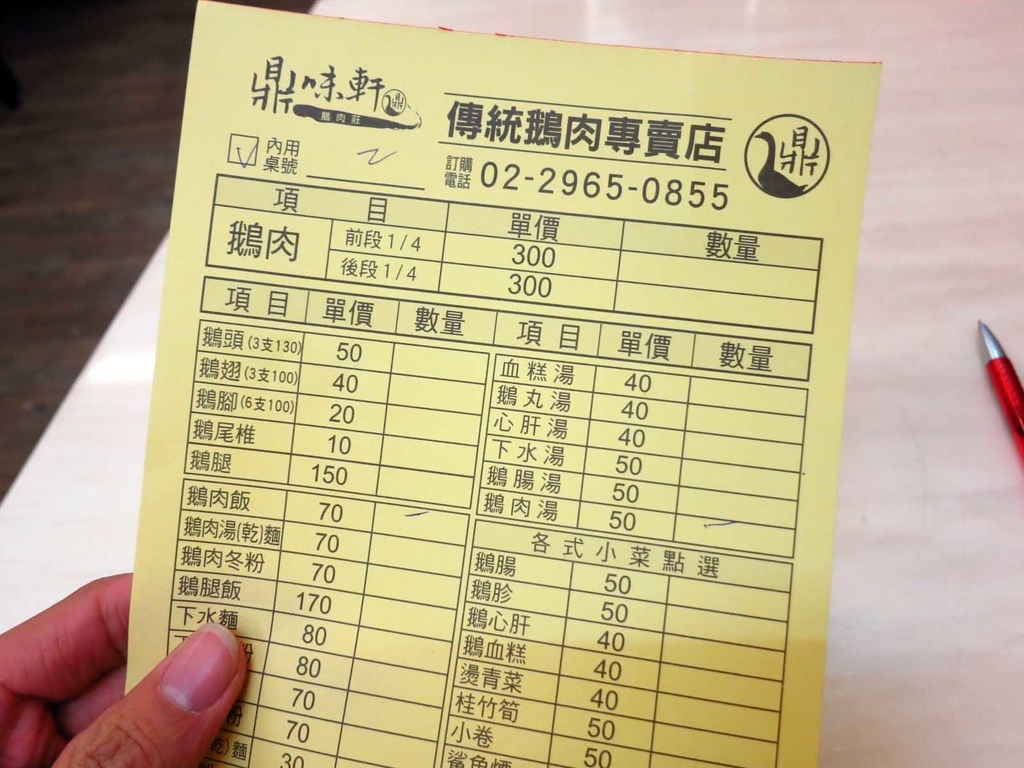 鼎味軒 鼎
鵝肉莊
傳統鵝肉專賣店
鼎
☑ 內用
桌號 2
訂購電話 02-2965-0855
項目 單價 數量
鵝肉 前段1/4 300
後段1/4 300
項目 單價 數量 項目 單價 數量
鵝頭(3支130) 50
鵝翅(3支100) 40
鵝腳(6支100) 20
鵝尾椎 10
鵝腿 150
鵝肉飯 70 一
鵝肉湯(乾)麵 70
鵝肉冬粉 70
鵝腿飯 170
下水麵 80
粉 80
70
粉 70
乾)麵 30
血糕湯 40
鵝丸湯 40
心肝湯 40
下水湯 50
鵝腸湯 50
鵝肉湯 50 一
各式小菜點選
鵝腸 50
鵝胗 50
鵝心肝 40
鵝血糕 40
燙青菜 40
桂竹筍 50
小卷 50
鯊魚煙